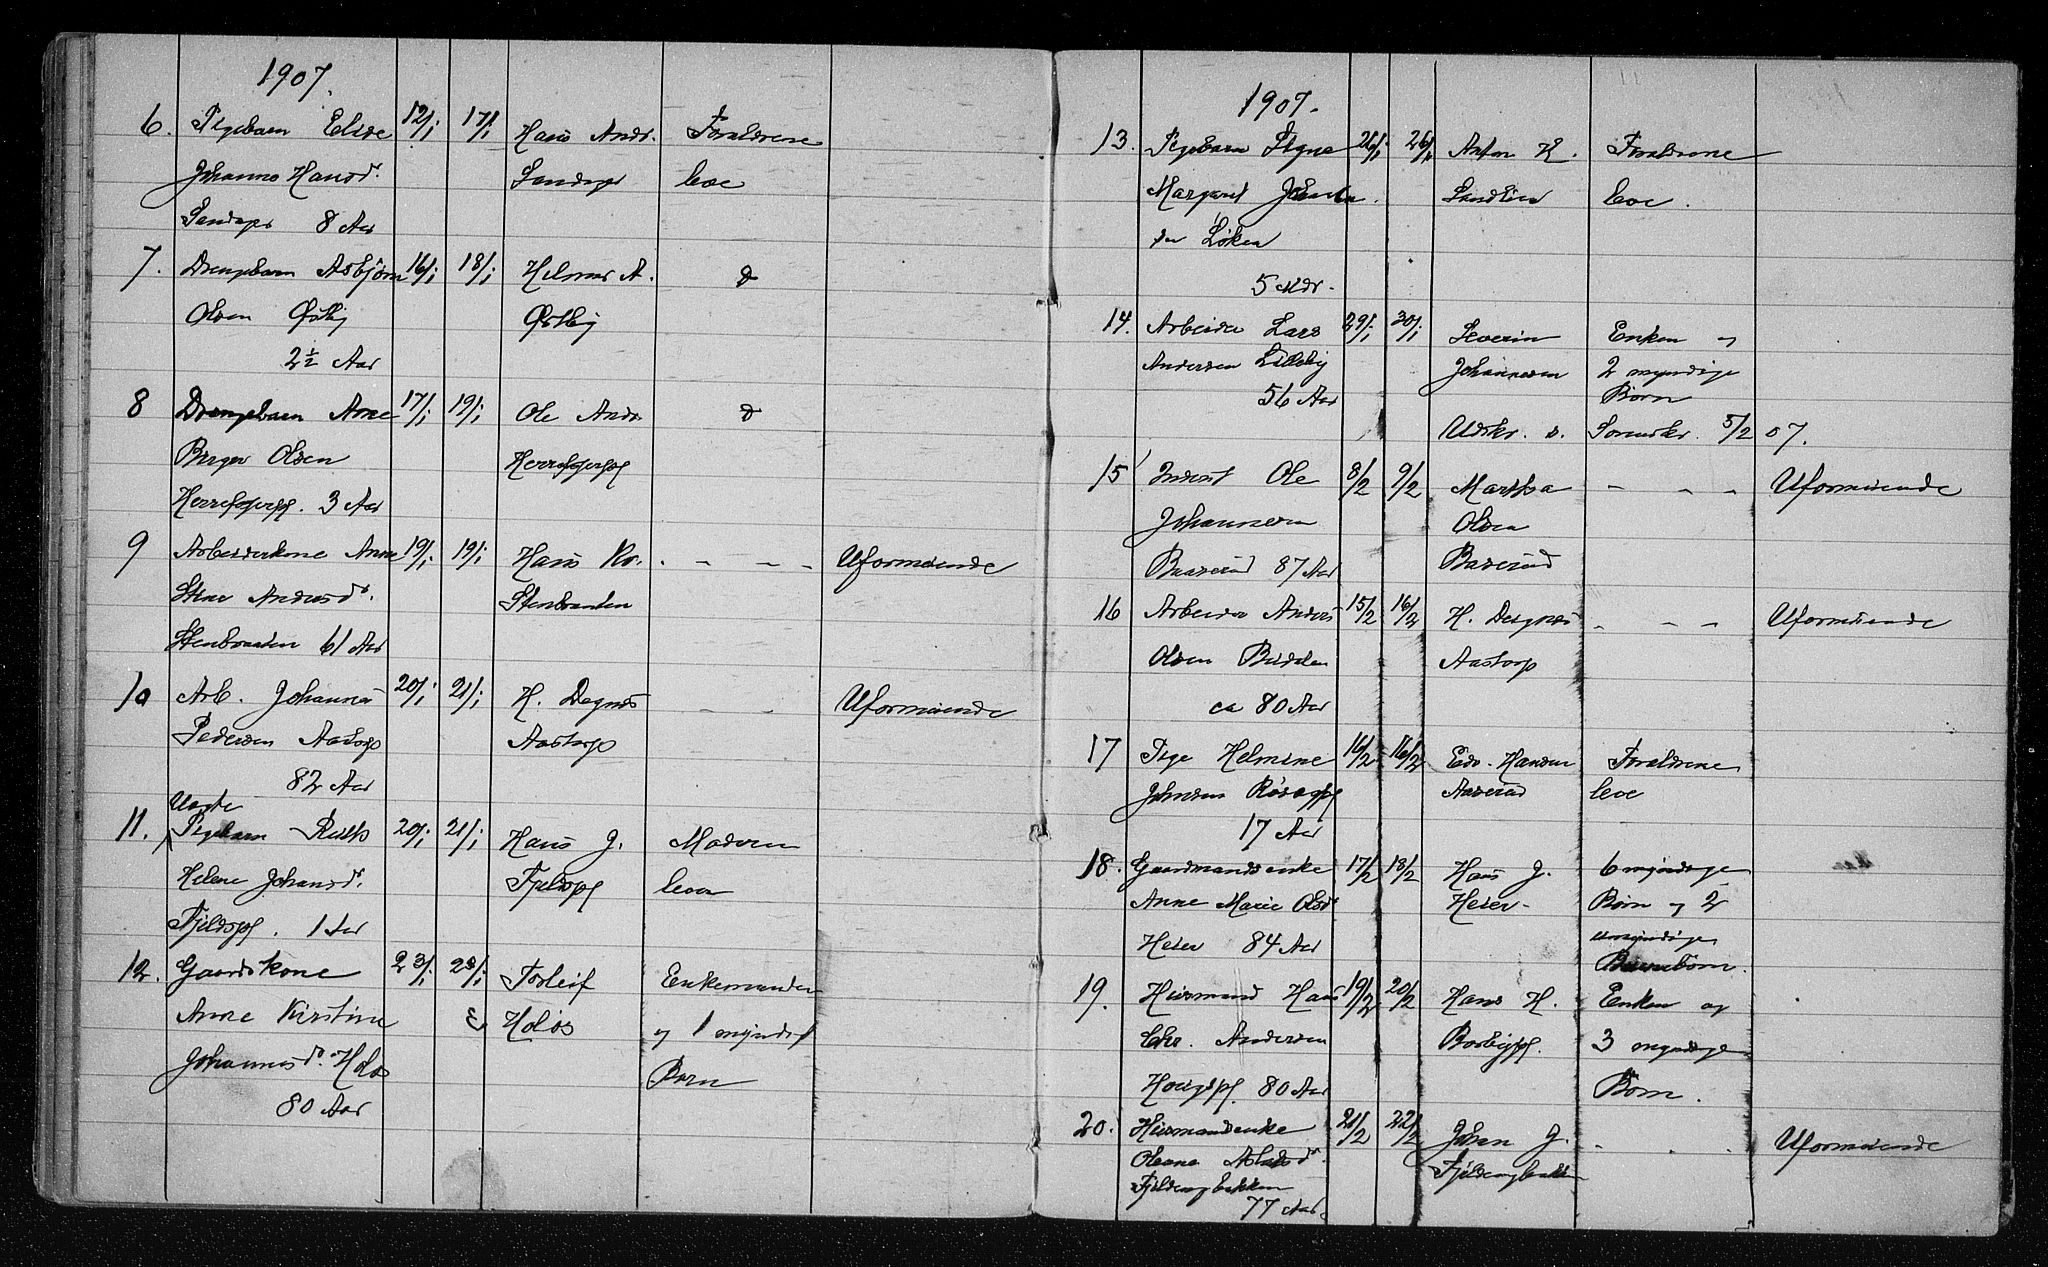 1907.
6. Pigebarn Elise 12/1 17/1 Hans Andr. Forældrene
Johanne Hansd. Sandager leve
Sandager 8 Aar
7. Drengebarn Asbjörn 16/1 18/1 Helmer A. d
Olsen Østby Østby
2½ Aar
8 Drengebarn Arne 17/1 19/1 Ole Andr. d
Birger Olsen
3 Aar
9 Arbeiderkone Anne 19/1 19/1 Hans Kr. - - - - Uformuende
Stine Andersd. Stenbraaten
Stenbraaten 61 Aar
10 Arb. Johannes 20/1 21/1 H. Degnes - - Uformuende
Pedersen Aastorp Aastorp
82 Aar
Uægte
11. Pigebarn Ruth 20/1 21/1 Hans J. Moderen
Helene Johansd. Fjeldspl lever
Fjeldspl. 1 Aar
12. Gaardskone 23/1 23/1 Torleif Enkemanden
Anne Kirstine Holøs og 1 myndigt
Johannesd. Holøs Barn
80 Aar
1907.
13. Pigebarn Signe 26/1 26/1 Anton H. Forældrene
Margaret Johans Sandlien leve.
Løken
5 Mdr.
14. Arbeider Lars 29/1 30/1 Severin Enken og
Andersen Lilleby Johannesen 2 myndige
56 Aar Börn
Udskr. s. Sorenskr. 5/2 07.
15 Inderst Ole 8/2 9/2 Martha - - - Uformuende
Johannesen Olsen
Baaserud 87 Aar Baaserud
16 Arbeider Anders 15/2 16/2 H. Degnæs - - - Uformuende
Olsen Aastorp
ca 80 Aar
17 Pige Helmine 16/2 16/2 Edv. Hansen Forældrene
Johnsen Aaserud leve
17 Aar
18. Gaardmandsenke 17/2 18/2 Hans J. 6 myndige
Anne Marie Olsd. Heier Børn og 2
Heier 84 Aar umyndige
Barnebørn.
19. Huusmand Hans 19/2 20/2 Hans H. Enken og
Chr. Andersen Borbypl. 3 myndige
Hougspl. 80 Aar Børn.
20. Huusmandsenke 21/2 22/2 Johan J. - - - Uformuende
Oleane Fjeldengbakken
Fjeldengbakken
77 Aar.